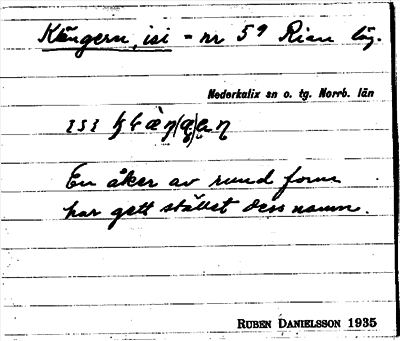 Klängern, isi = nr 5⁹ Rian läg.
Nederkalix sn o. tg. Norrb. län
En åker av rund form
har gett stället dess namn.
RUBEN DANIELSSON 1935